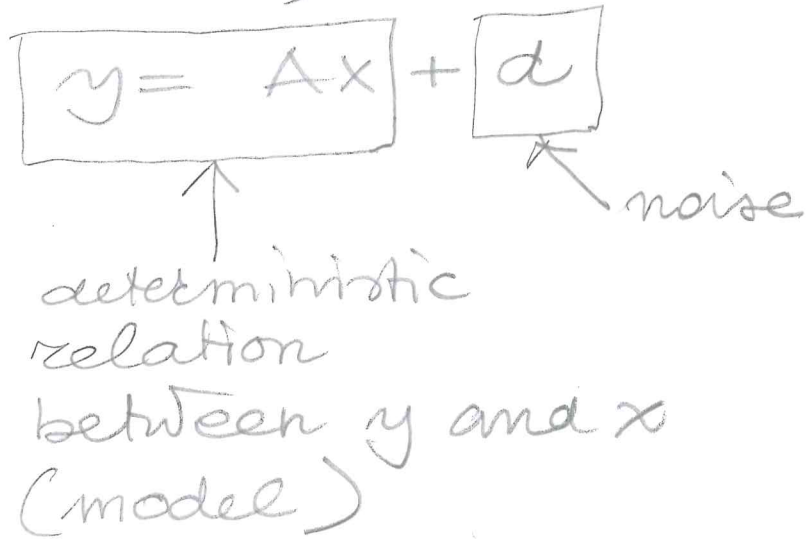 y = Ax + d
noise
deterministic
relation
between y and x
(model)